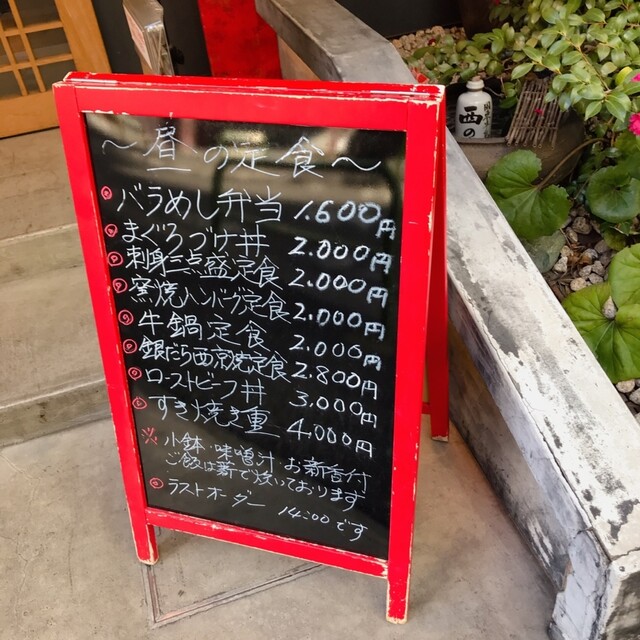 ～昼の定食～
◎バラめし弁当 1.600円
◎まぐろづけ丼 2.000円
◎刺身三点盛定食 2.000円
◎窯焼ハンバーグ定食 2.000円
◎牛鍋定食 2.000円
◎銀だら西京焼定食 2.800円
◎ローストビーフ丼 3.000円
◎すき焼き重 4.000円
※小鉢・味噌汁 お新香付
ご飯は薪で炊いております
◎ラストオーダー 14:00です
西の